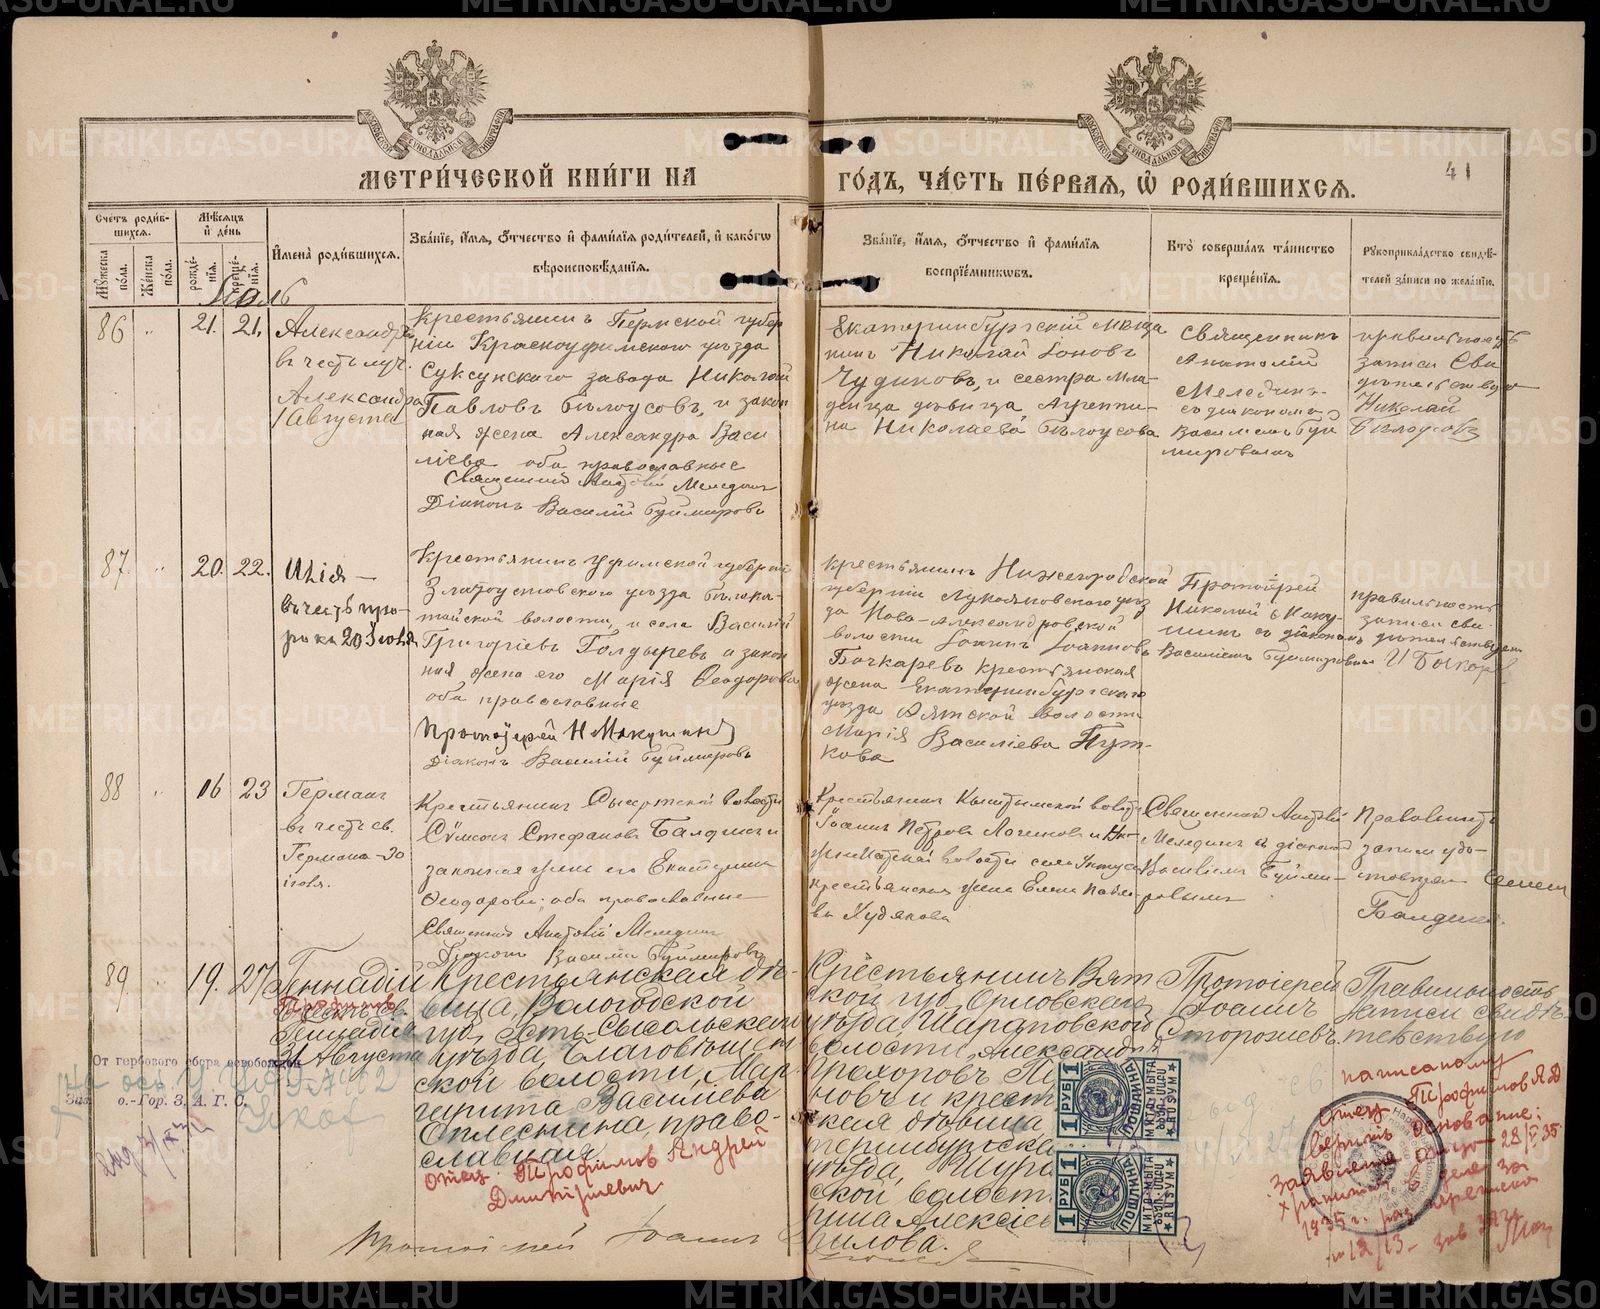 METRIKI.GASO-URAL.RU
МОСКОВСКОЙ СѴНОДАЛЬНОЙ ТИПОГРАФІИ
МОСКОВСКОЙ СѴНОДАЛЬНОЙ ТИПОГРАФІИ
МЕТРИ́ЧЕСКОЙ КНИ́ГИ НА
ГО́ДЪ, ЧА́СТЬ ПЕ́РВАЯ, Ѡ҆ РОДИ́ВШИХСЯ.
41
Счетъ роди́в-
шихся.
Мѣ́сяцъ
и де́нь
Мꙋжеска
пола.
Же́нска
по́ла.
рожде́-
нія.
креще́-
нія.
И҆мена̀ роди́вшихся.
Зва́ніе, и҆́мя, о҆́тчество и҆ фами́лія роди́телей, и҆ како́гѡ
вѣроисповѣ́данія.
Зва́ніе, и҆́мя, о҆́тчество и҆ фами́лія
воспріе́мниковъ.
Кто̀ соверша́лъ та́инство
креще́нія.
Рꙋкоприкла́дство свидѣ́-
телей за́писи по жела́нію.
Іюль
86 " 21. 21.
Александра
въ честь муч.
Александра
1 Августа
Крестьянинъ Пермской губер
ніи Красноуфимского уѣзда
Суксунского завода Николай
Павловъ Бѣлоусовъ, и закон
ная жена Александра Васи
ліева оба православные
Священникъ Анатолій Меледин
Діаконъ Василій Буймировъ
Екатеринбургскій мѣща
нинъ Николай Іоновъ
Чудиновъ, и сестра мла-
денца дѣвица, Агреппи-
на Николаева Бѣлоусова
Священникъ
Анатолій
Меледин
съ діакономъ
Василіемъ Буй
мировымъ
правильность
записи сви
дѣтельствую
Николай
Бѣлоусов
87. " 20. 22.
Илія —
въ честь про-
рока 20 Іюля
Крестьянинъ Уфимской губерніи
Златоустовского уѣзда Бѣлока-
тайской волости, и села Василій
Григоріевъ Голдыревъ и закон
ная жена его Марія Ѳеодорова
оба православные
Протоіерей Н Мякушинъ
Діаконъ Василій Буймировъ
крестьянинъ Нижегородской
губерніи Лукояновского уѣз
да Ново-Александровской
волости Іоаннъ Іоанновъ
Бочкаревъ крестьянская
жена Екатеринбургского
уѣзда Аятской волости
Марія Василіева Пут-
кова
Протоіерей
Николай
съ діаконом
Василіемъ Буймировым
правильность
записи сви-
дѣтельствую
И Бочкарев
88 " 16 23
Герман
въ честь св.
Германа 30
іюля.
Крестьянин Сысертской волости
Сѵмеон Стефановъ Балдин и
законная жена его Екатерина
Ѳеодорова; оба православные
Священник Анатолій Меледин
Діаконъ Василій Буймировъ
Крестьянин Кыштымской волости
Іоаннъ Петровъ
волости села Уктуса
крестьянская жена Елена Павло-
ва Худякова
Священник Анатолій
Меледин съ діаконом
Василіем Буйми-
ровымъ
Правильность
записи удо-
стоверяю Семен
Балдин.
89. " 19. 27
Геннадій
Трофимов
въ честь св.
Геннадія
31 Августа
Крестьянская дѣ-
вица, Вологодской
губ. Усть-Сысольскаго
уѣзда, Благовѣщен
ской волости, Мар-
гарита Василіева
Оплеснина, право-
славная.
отец Трофимов Андрей
Дмитриевич
Протоіерей Іоаннъ
Крестьянинъ Вят
ской губ Орловскаго
уѣзда Шарановской
волости, Александръ
Прохоровъ
новъ и крест
ская дѣвица
теринбургска
уѣзда, Шура
ской волост.
Алексіев
вилова.
Протоіерей
Іоаннъ
Сторожевъ.
Правильность
записи свидѣ-
тельствую
От гербового сбора освобожден
о.-Гор. З. А. Г. С.
1 РУБ
ПОШЛИНА
1 РУБ
ПОШЛИНА
написаному
отец Трофимов А Д
верить основание:
заявление отца — 28/V 35
хранится в деле за
1935 г.